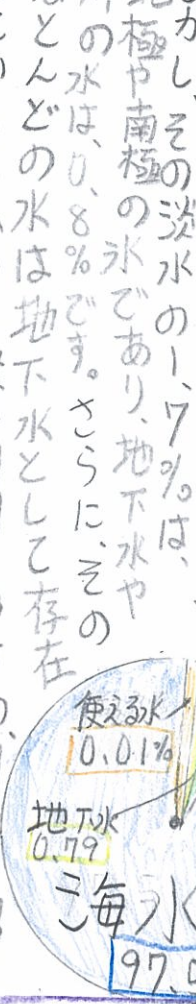 かし、その淡水の1、7%は、
極や南極の氷であり、地下水や
の水は、0、8%です。さらに、その
とんどの水は地下水として存在
使える水
0.01%
地下水
0.79
海水
97.